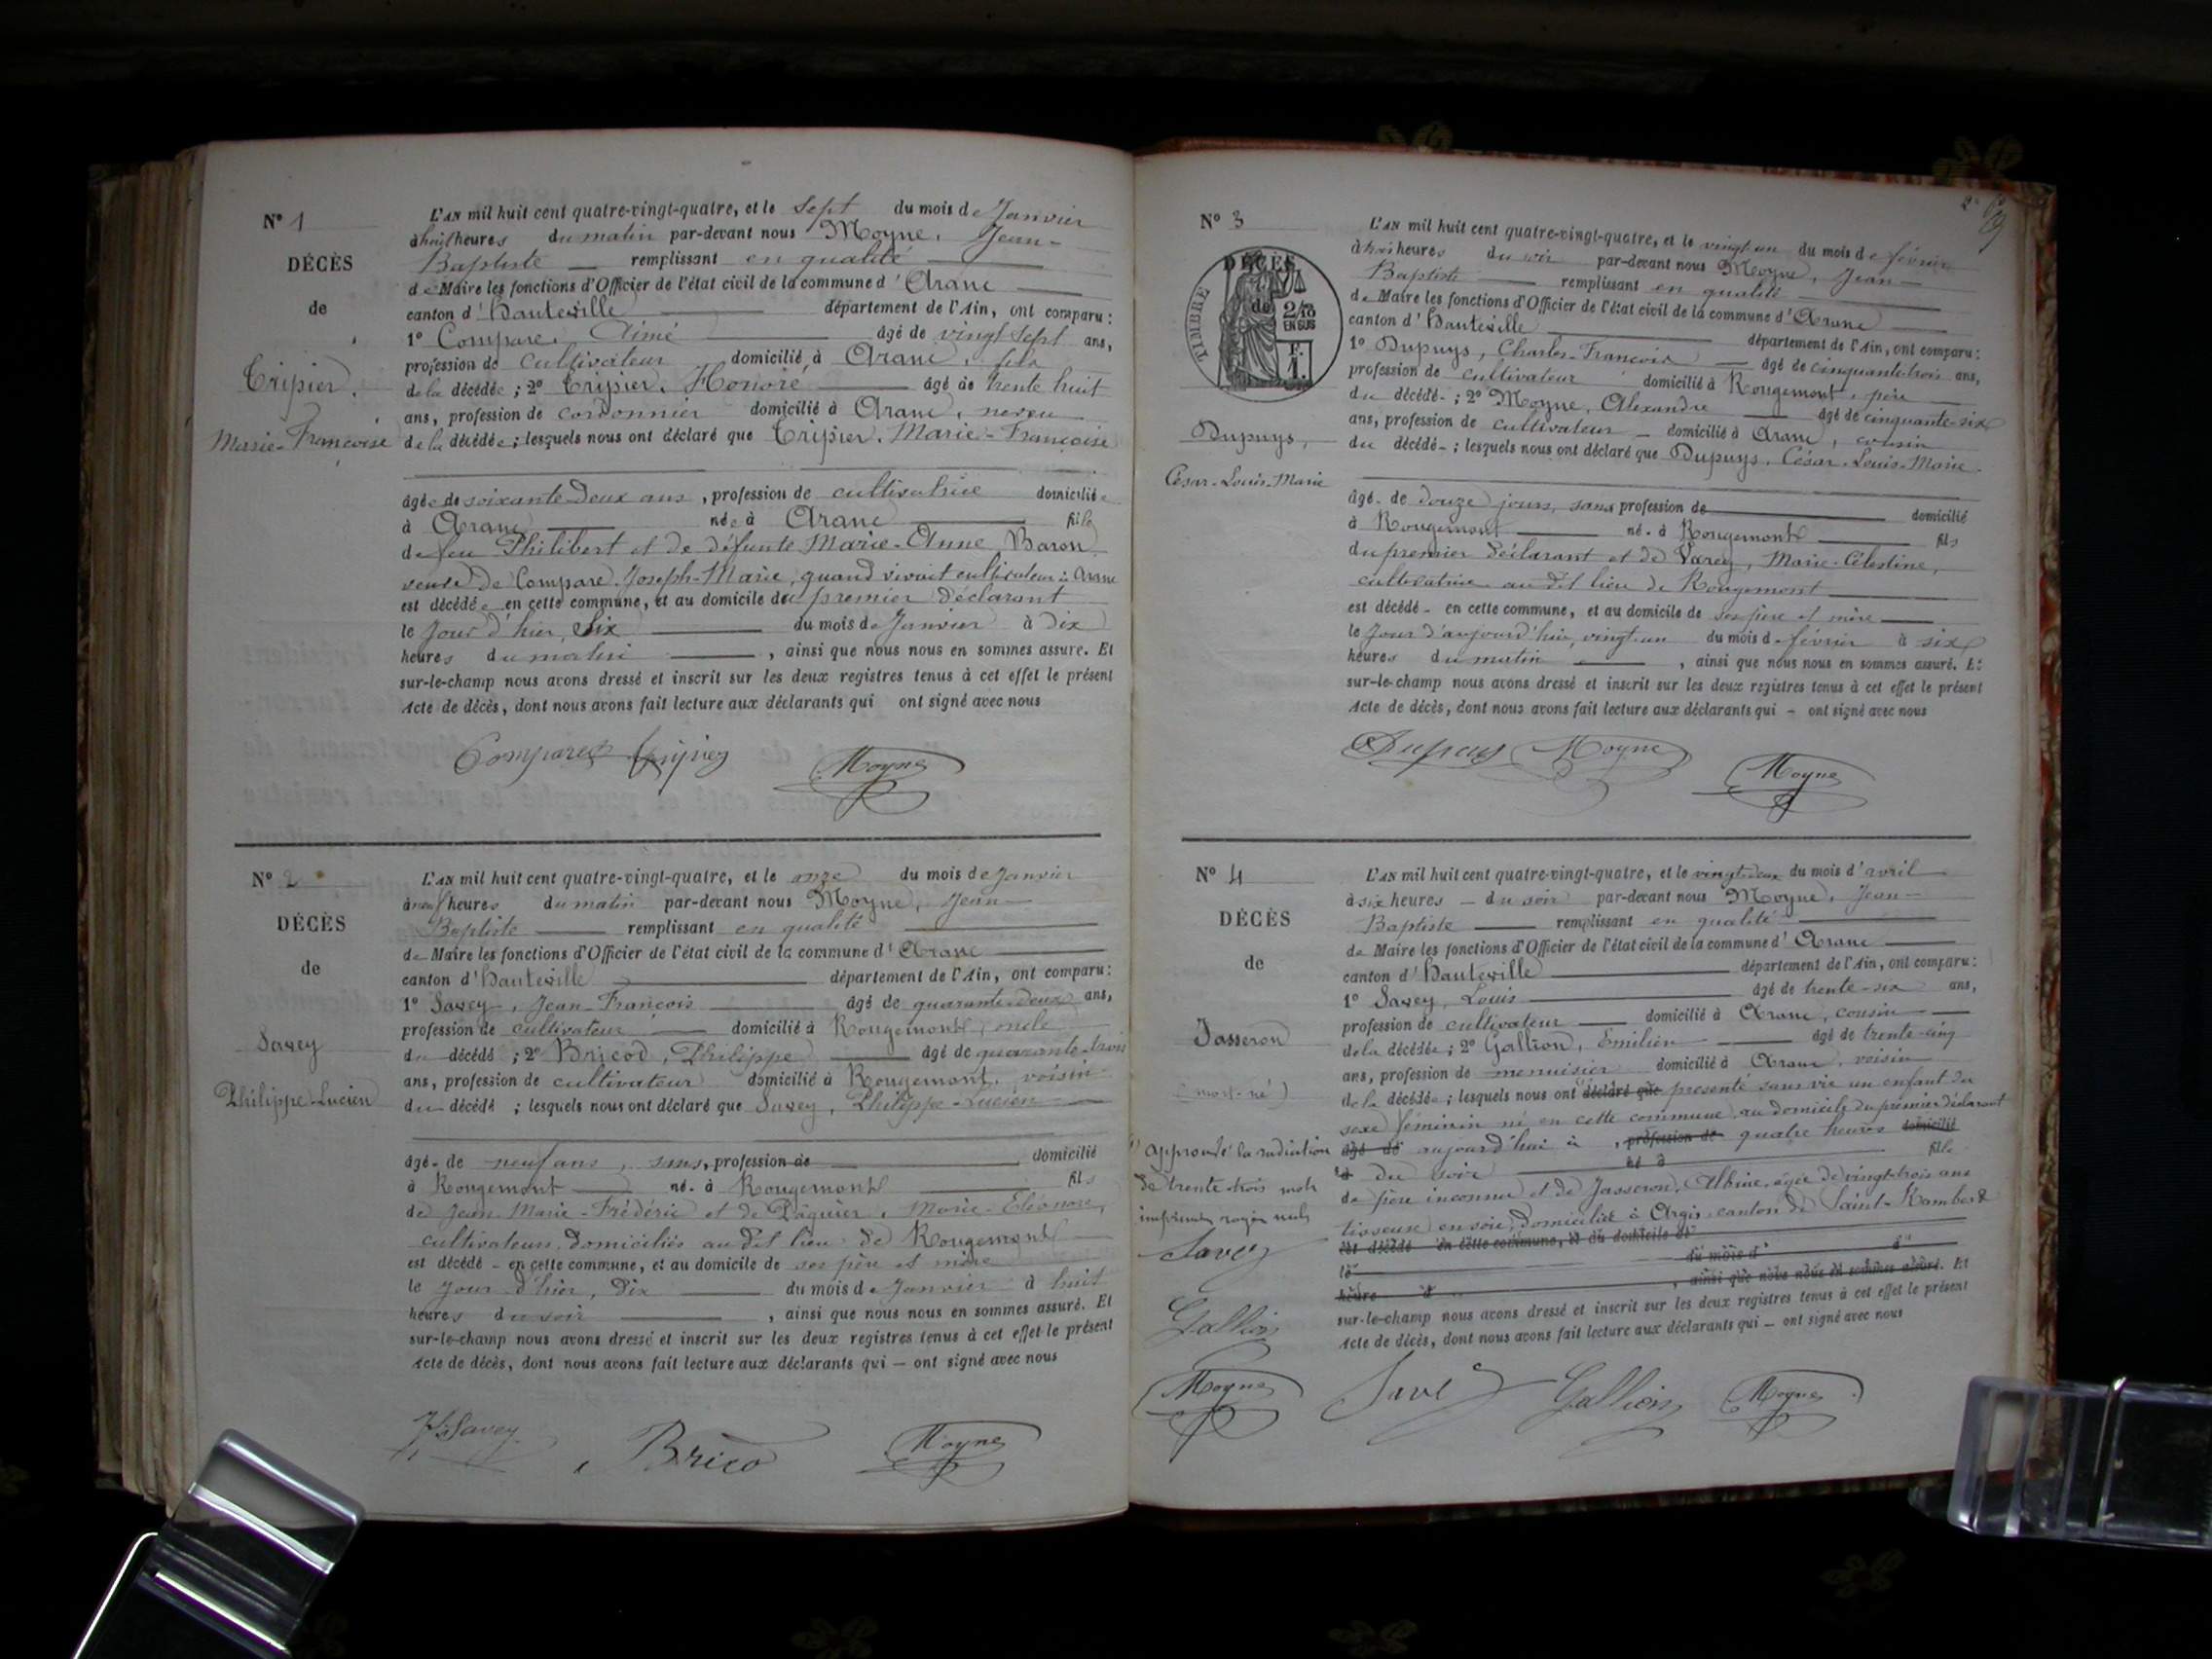 N° 1
DÉCÈS
de
Tripier,
Marie-Françoise
L'AN mil huit cent quatre-vingt-quatre, et le sept du mois de Janvier
à huit heures du matin par-devant nous Moyne, Jean-
Baptiste remplissant en qualité
de Maire les fonctions d'Officier de l'état civil de la commune d'Aranc
canton d'Hauteville département de l'Ain, ont comparu :
1° Compare, Aimé âgé de vingt sept ans,
profession de cultivateur domicilié à Aranc, fils
de la décédée ; 2° Tripier, Honoré âgé de trente huit
ans, profession de cordonnier domicilié à Aranc, neveu
de la décédée ; lesquels nous ont déclaré que Tripier, Marie-Françoise
âgée de soixante-deux ans, profession de cultivatrice domiciliée
à Aranc née à Aranc fille
de feu Philibert et de défunte Marie-Anne Baron,
veuve de Compare, Joseph-Marie, quand vivait cultivateur à Aranc
est décédée en cette commune, et au domicile du premier déclarant
le jour d'hier, six du mois de Janvier à dix
heures du matin, ainsi que nous nous en sommes assuré. Et
sur-le-champ nous avons dressé et inscrit sur les deux registres tenus à cet effet le présent
Acte de décès, dont nous avons fait lecture aux déclarants qui ont signé avec nous
Compare Tripier Moyne
N° 2
DÉCÈS
de
Savey
Philippe-Lucien
L'AN mil huit cent quatre-vingt-quatre, et le onze du mois de Janvier
à neuf heures du matin par-devant nous Moyne, Jean-
Baptiste remplissant en qualité
de Maire les fonctions d'Officier de l'état civil de la commune d'Aranc
canton d'Hauteville département de l'Ain, ont comparu :
1° Savey, Jean-François âgé de quarante-deux ans,
profession de cultivateur domicilié à Rougemont, oncle
du décédé ; 2° Bricod, Philippe âgé de quarante-trois
ans, profession de cultivateur domicilié à Rougemont, voisin
du décédé ; lesquels nous ont déclaré que Savey, Philippe-Lucien
âgé de neuf ans, sans, profession de domicilié
à Rougemont né à Rougemont fils
de Jean-Marie-Frédéric et de Pâquier, Marie-Eléonore,
cultivateurs, domiciliés au dit lieu de Rougemont
est décédé en cette commune, et au domicile de ses père et mère
le jour d'hier, dix du mois de Janvier à huit
heures du soir, ainsi que nous nous en sommes assuré. Et
sur-le-champ nous avons dressé et inscrit sur les deux registres tenus à cet effet le présent
Acte de décès, dont nous avons fait lecture aux déclarants qui — ont signé avec nous
Savey Brico Moyne
2
N° 3
DÉCÈS
de
TIMBRE
2/10
EN SUS
F.
1.
Dupuys,
César-Louis-Marie
L'AN mil huit cent quatre-vingt-quatre, et le vingt-un du mois de février
à trois heures du soir par-devant nous Moyne, Jean-
Baptiste remplissant en qualité
de Maire les fonctions d'Officier de l'état civil de la commune d'Aranc
canton d'Hauteville département de l'Ain, ont comparu :
1° Dupuys, Charles-François âgé de cinquante-trois ans,
profession de cultivateur domicilié à Rougemont, père
du décédé ; 2° Moyne, Alexandre âgé de cinquante-six
ans, profession de cultivateur domicilié à Aranc, cousin
du décédé ; lesquels nous ont déclaré que Dupuys, César-Louis-Marie
âgé de douze jours, sans profession de domicilié
à Rougemont né à Rougemont fils
du premier déclarant et de Varey, Marie-Célestine,
cultivatrice au dit lieu de Rougemont
est décédé en cette commune, et au domicile de ses père et mère
le jour d'aujourd'hui, vingt-un du mois de février à six
heures du matin, ainsi que nous nous en sommes assuré. Et
sur-le-champ nous avons dressé et inscrit sur les deux registres tenus à cet effet le présent
Acte de décès, dont nous avons fait lecture aux déclarants qui — ont signé avec nous
Dupuys Moyne Moyne
N° 4
DÉCÈS
de
Jasseron
(mort-né)
approuvé la radiation
de trente trois mots
imprimés rayés nuls
Savey
Gallion
Moyne
L'AN mil huit cent quatre-vingt-quatre, et le vingt-deux du mois d'avril
à six heures du soir par-devant nous Moyne, Jean-
Baptiste remplissant en qualité
de Maire les fonctions d'Officier de l'état civil de la commune d'Aranc
canton d'Hauteville département de l'Ain, ont comparu :
1° Savey, Louis âgé de trente-six ans,
profession de cultivateur domicilié à Aranc, cousin
de la décédée ; 2° Gallion, Emilien âgé de trente-cinq
ans, profession de menuisier domicilié à Aranc, voisin
de la décédée ; lesquels nous ont déclaré que présenté sans vie un enfant du
sexe féminin né en cette commune au domicile du premier déclarant
âgé de aujourd'hui à, profession de quatre heures domicilié
à du soir né à fille
de père inconnu et de Jasseron, Albine, âgée de vingt-trois ans
tisseuse en soie, domiciliée à Argis, canton de Saint-Rambert
est décédé en cette commune, et au domicile de
le du mois d à
heure d, ainsi que nous nous en sommes assuré. Et
sur-le-champ nous avons dressé et inscrit sur les deux registres tenus à cet effet le présent
Acte de décès, dont nous avons fait lecture aux déclarants qui — ont signé avec nous
Savey Gallion Moyne